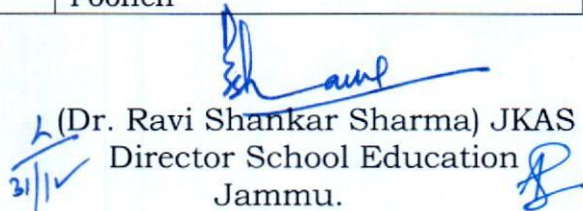 Poonch
(Dr. Ravi Shankar Sharma) JKAS
Director School Education
Jammu.